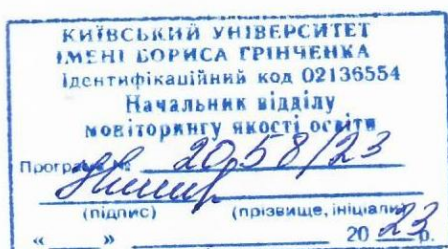 КИЇВСЬКИЙ УНІВЕРСИТЕТ
ІМЕНІ БОРИСА ГРІНЧЕНКА
Ідентифікаційний код 02136554
Начальник відділу
моніторингу якості освіти
Програма № 2058/23
(підпис) (прізвище, ініціали)
« » 2023 р.